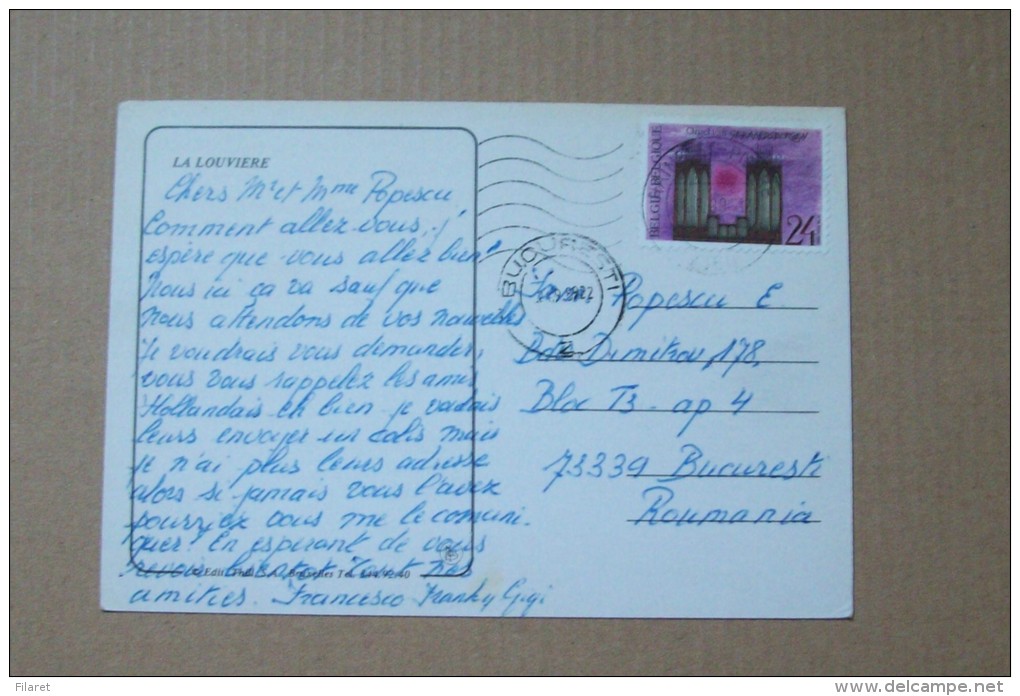 LA LOUVIERE
Chers Mr et Mme Popescu
Comment allez vous, j'
espère que vous allez bien!
Nous ici ça va sauf que
nous attendons de vos nouvelles
Je voudrais vous demander,
vous vous rappelez les amis
Hollandais eh bien je voulais
leurs envoyer un colis mais
je n'ai plus leurs adresse
alors si jamais vous l'avez
pourriez vous me le comuni.
quer! En esperant de vous
revoir bientot Tout nos
amitiés. Francesco Franky Gigi
BELGIE-BELGIQUE
24
BUCURESTI
2
Popescu E.
Dimitrov, 178,
Bloc T3 - ap 4
73339 Bucuresti
Roumania
Filaret
delcampe.net